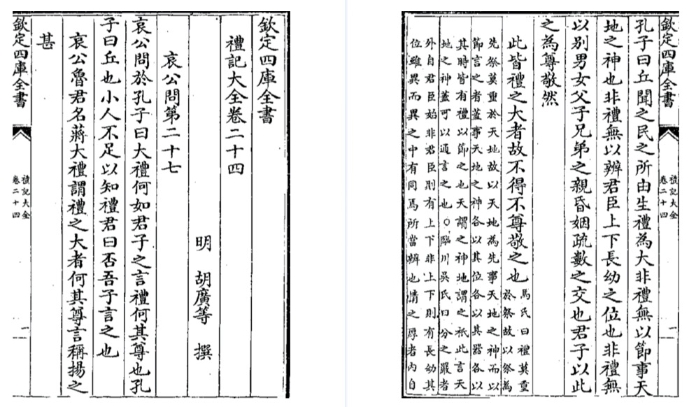 欽定四庫全書
禮記大全卷二十四
明 胡廣等 撰
哀公問第二十七
哀公問於孔子曰大禮何如君子之言禮何其尊也孔
子曰丘也小人不足以知禮君曰否吾子言之也
哀公魯君名蔣大禮謂禮之大者何其尊言稱揚之
甚
欽定四庫全書
禮記大全
卷二十四
一
欽定四庫全書
禮記大全
卷二十四
孔子曰丘聞之民之所由生禮為大非禮無以節事天
地之神也非禮無以辨君臣上下長幼之位也非禮無
以別男女父子兄弟之親昏姻疏數之交也君子以此
之為尊敬然
此皆禮之大者故不得不尊敬之也
馬氏曰禮莫重
於祭故以祭為
先祭莫重於天地故以天地為先事天地之神而以
節言之者蓋事天地之神各以其位各以其器各以
其時皆有禮以節之也天謂之神地謂之祇此言天
地之神蓋可以通言之也○臨川吳氏曰分之嚴者
外自君臣始非君臣則有上下非上下則有長幼其
位雖異而異之中有同焉所當辨也情之厚者內自